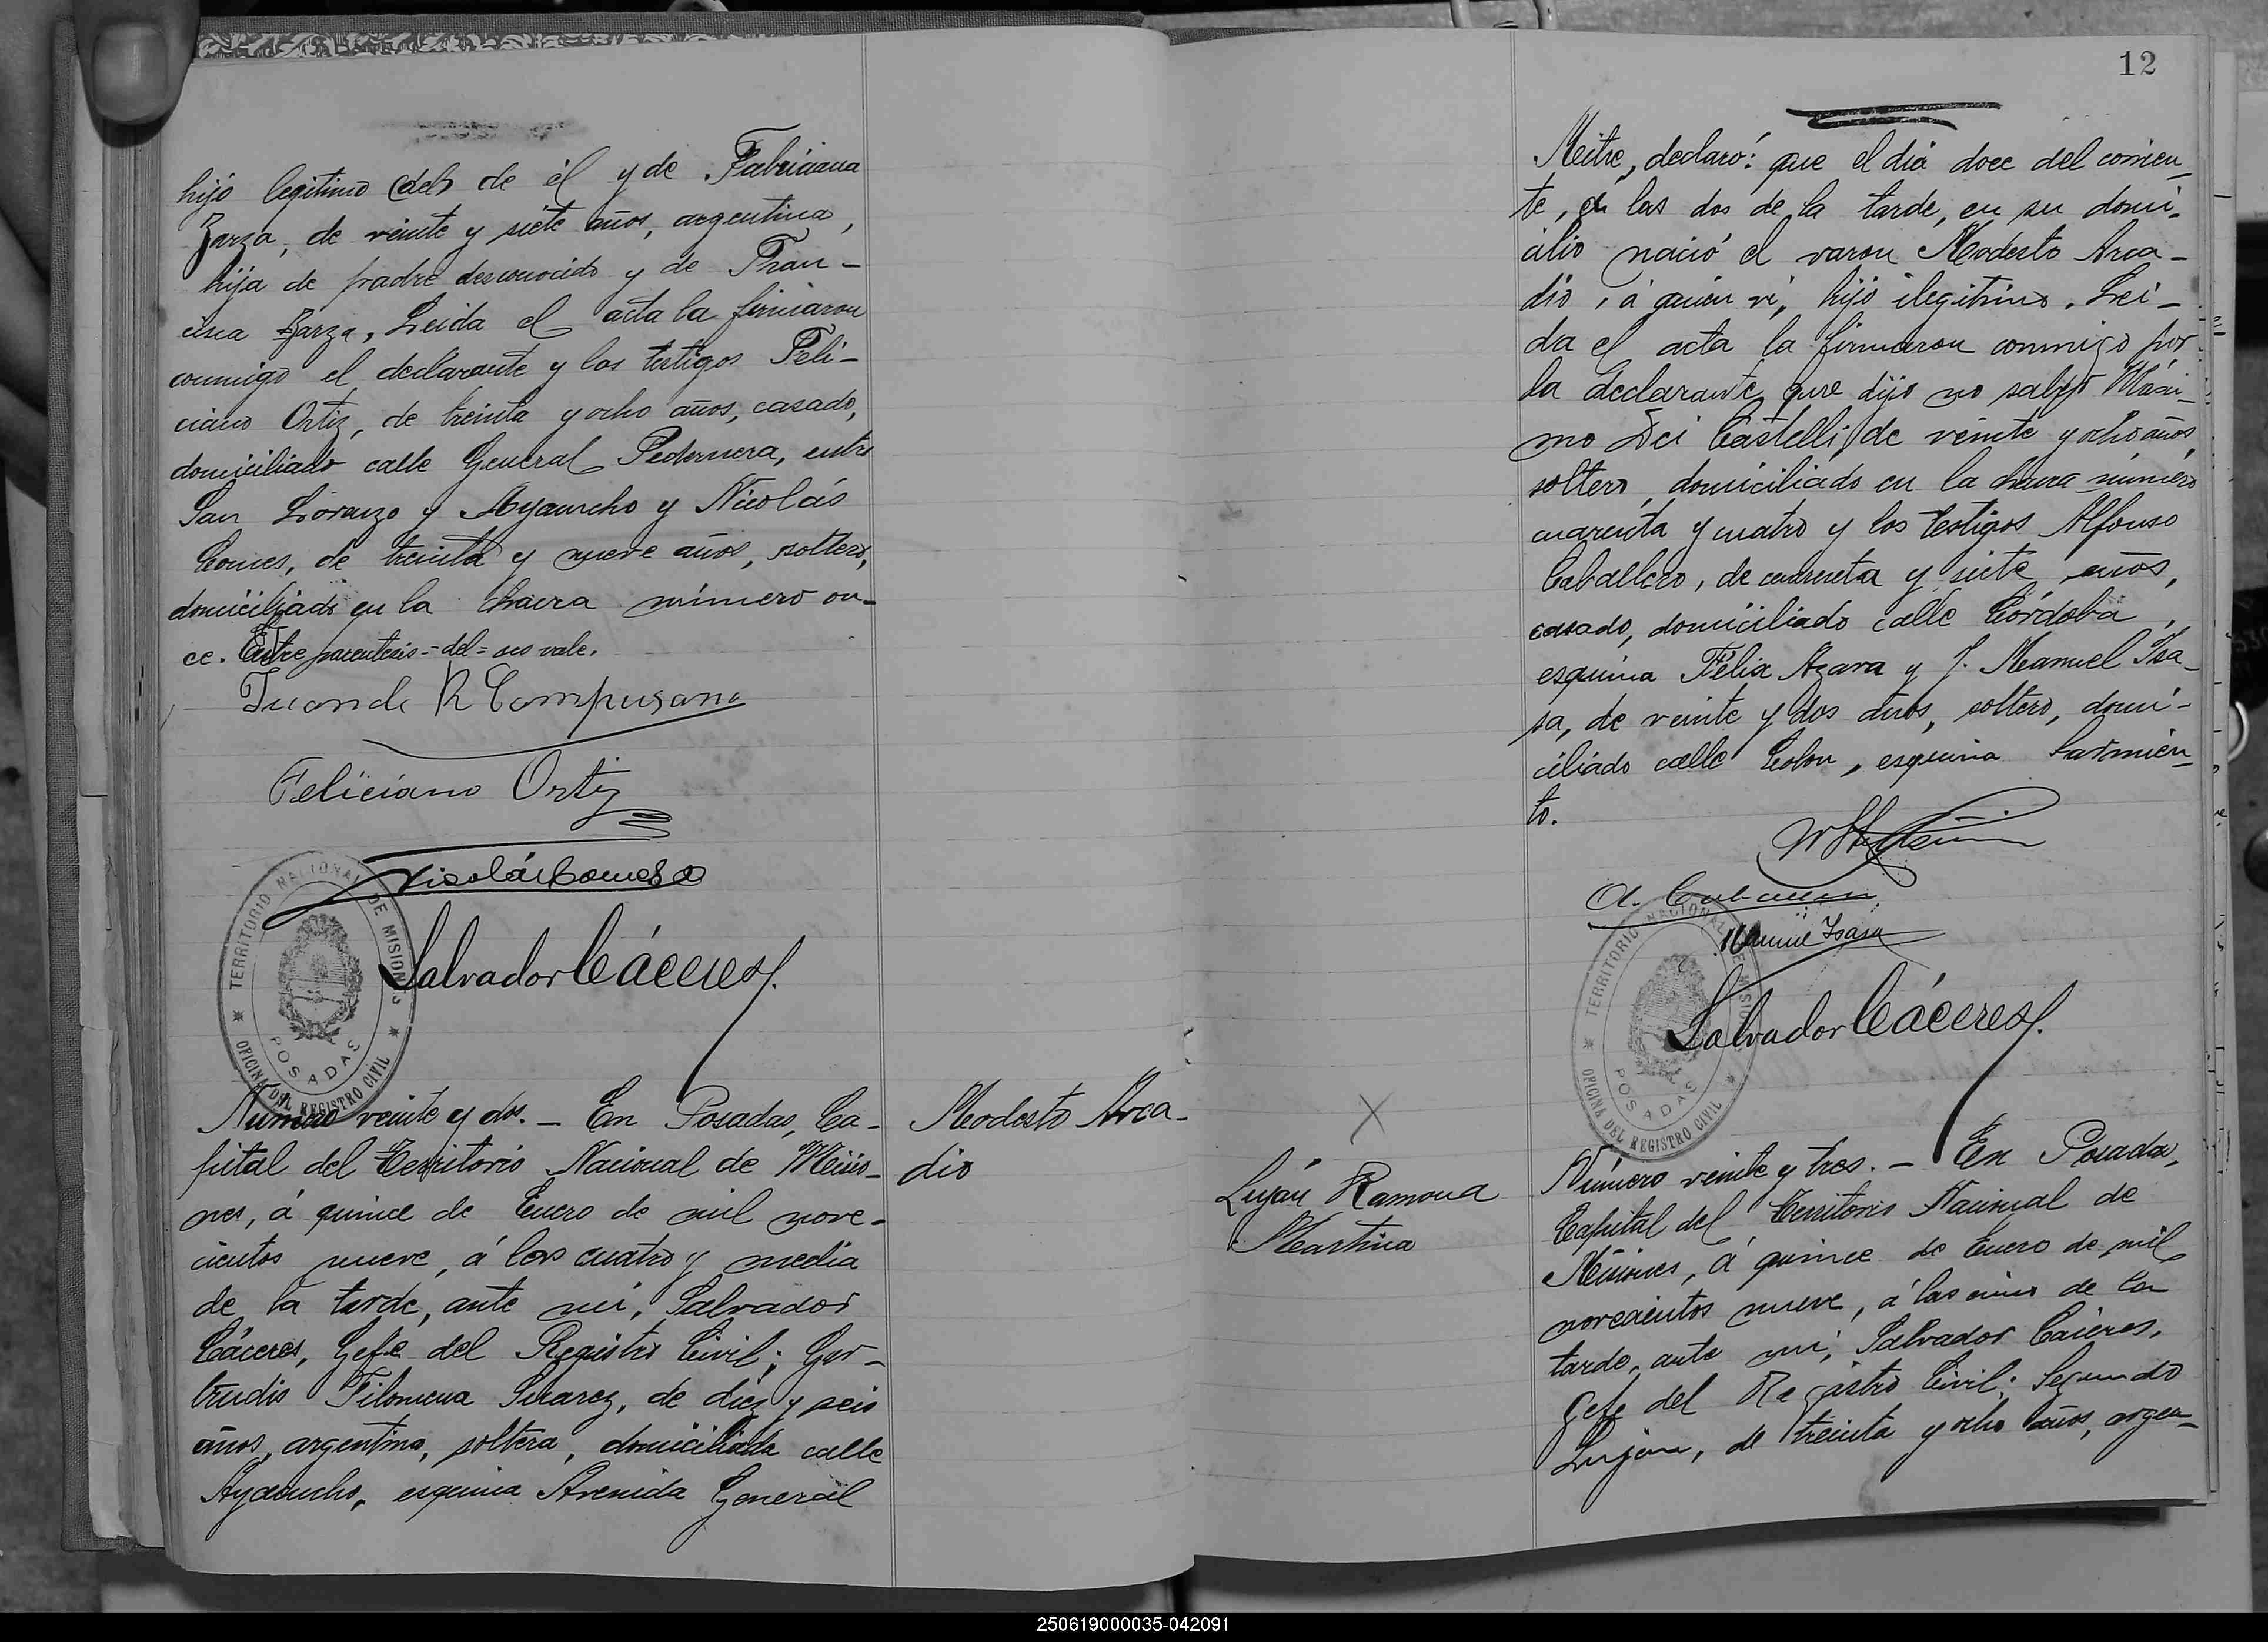 hijo legitimo (del) de él y de Fabriciana
Zarza, de veinte y siete años, argentina,
hija de padre desconocido y de Fran-
cisca Zarza, Leida el acta la firmaron
conmigo el declarante y los testigos Feli-
ciano Ortiz, de treinta y ocho años, casado,
domiciliado calle General Pedernera, entre
San Lorenzo y Ayacucho y Nicolás
Comes, de treinta y nueve años, soltero,
domiciliado en la chacra número on-
ce. Entre parentesis = del = no vale.
Juan de R Campusano
Feliciano Ortiz
Nicolás Comes
TERRITORIO NACIONAL DE MISIONES
POSADAS
OFICINA DEL REGISTRO CIVIL
Salvador Cáceres
Número veinte y dos. - En Posadas, Ca-
pital del Territorio Nacional de Misio-
nes, á quince de Enero de mil nove-
cientos nueve, á las cuatro y media
de la tarde, ante mi, Salvador
Cáceres, Gefe del Registro Civil; Ger-
trudis Filomena Suarez, de diez y seis
años, argentina, soltera, domiciliada calle
Ayacucho, esquina Avenida General
Modesto Arca-
dio
12
Mitre, declaró: que el dia doce del corrien-
te, á las dos de la tarde, en su domi-
cilio nació el varon Modesto Arca-
dio, á quien vi, hijo ilegitimo. Lei-
da el acta la firmaron conmigo por
la declarante que dijo no saber Máxi-
mo Dei Castelli, de veinte y ocho años,
soltero, domiciliado en la chacra número
cuarenta y cuatro y los testigos Alfonso
Caballero, de cuarenta y siete años,
casado, domiciliado calle Córdoba,
esquina Félix Azara y J. Manuel Isa-
sa, de veinte y dos años, soltero, domi-
ciliado calle Colon, esquina Sarmien-
to.
A. Caballero
Manuel Isasa
TERRITORIO NACIONAL DE MISIONES
POSADAS
OFICINA DEL REGISTRO CIVIL
Salvador Cáceres
X
Luján Ramona
Martina
Número veinte y tres. - En Posadas,
Capital del Territorio Nacional de
Misiones, á quince de Enero de mil
novecientos nueve, á las cinco de la
tarde, ante mi, Salvador Cáceres,
Gefe del Registro Civil; Segundo
Lujan, de treinta y ocho años, argen-
250619000035-042091